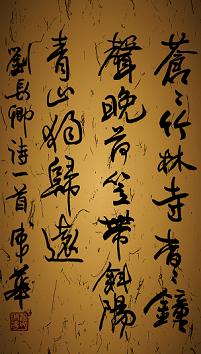 蒼〻竹林寺杳〻鐘
聲晚荷笠帶斜陽
青山獨歸遠
劉長卿诗一首 華